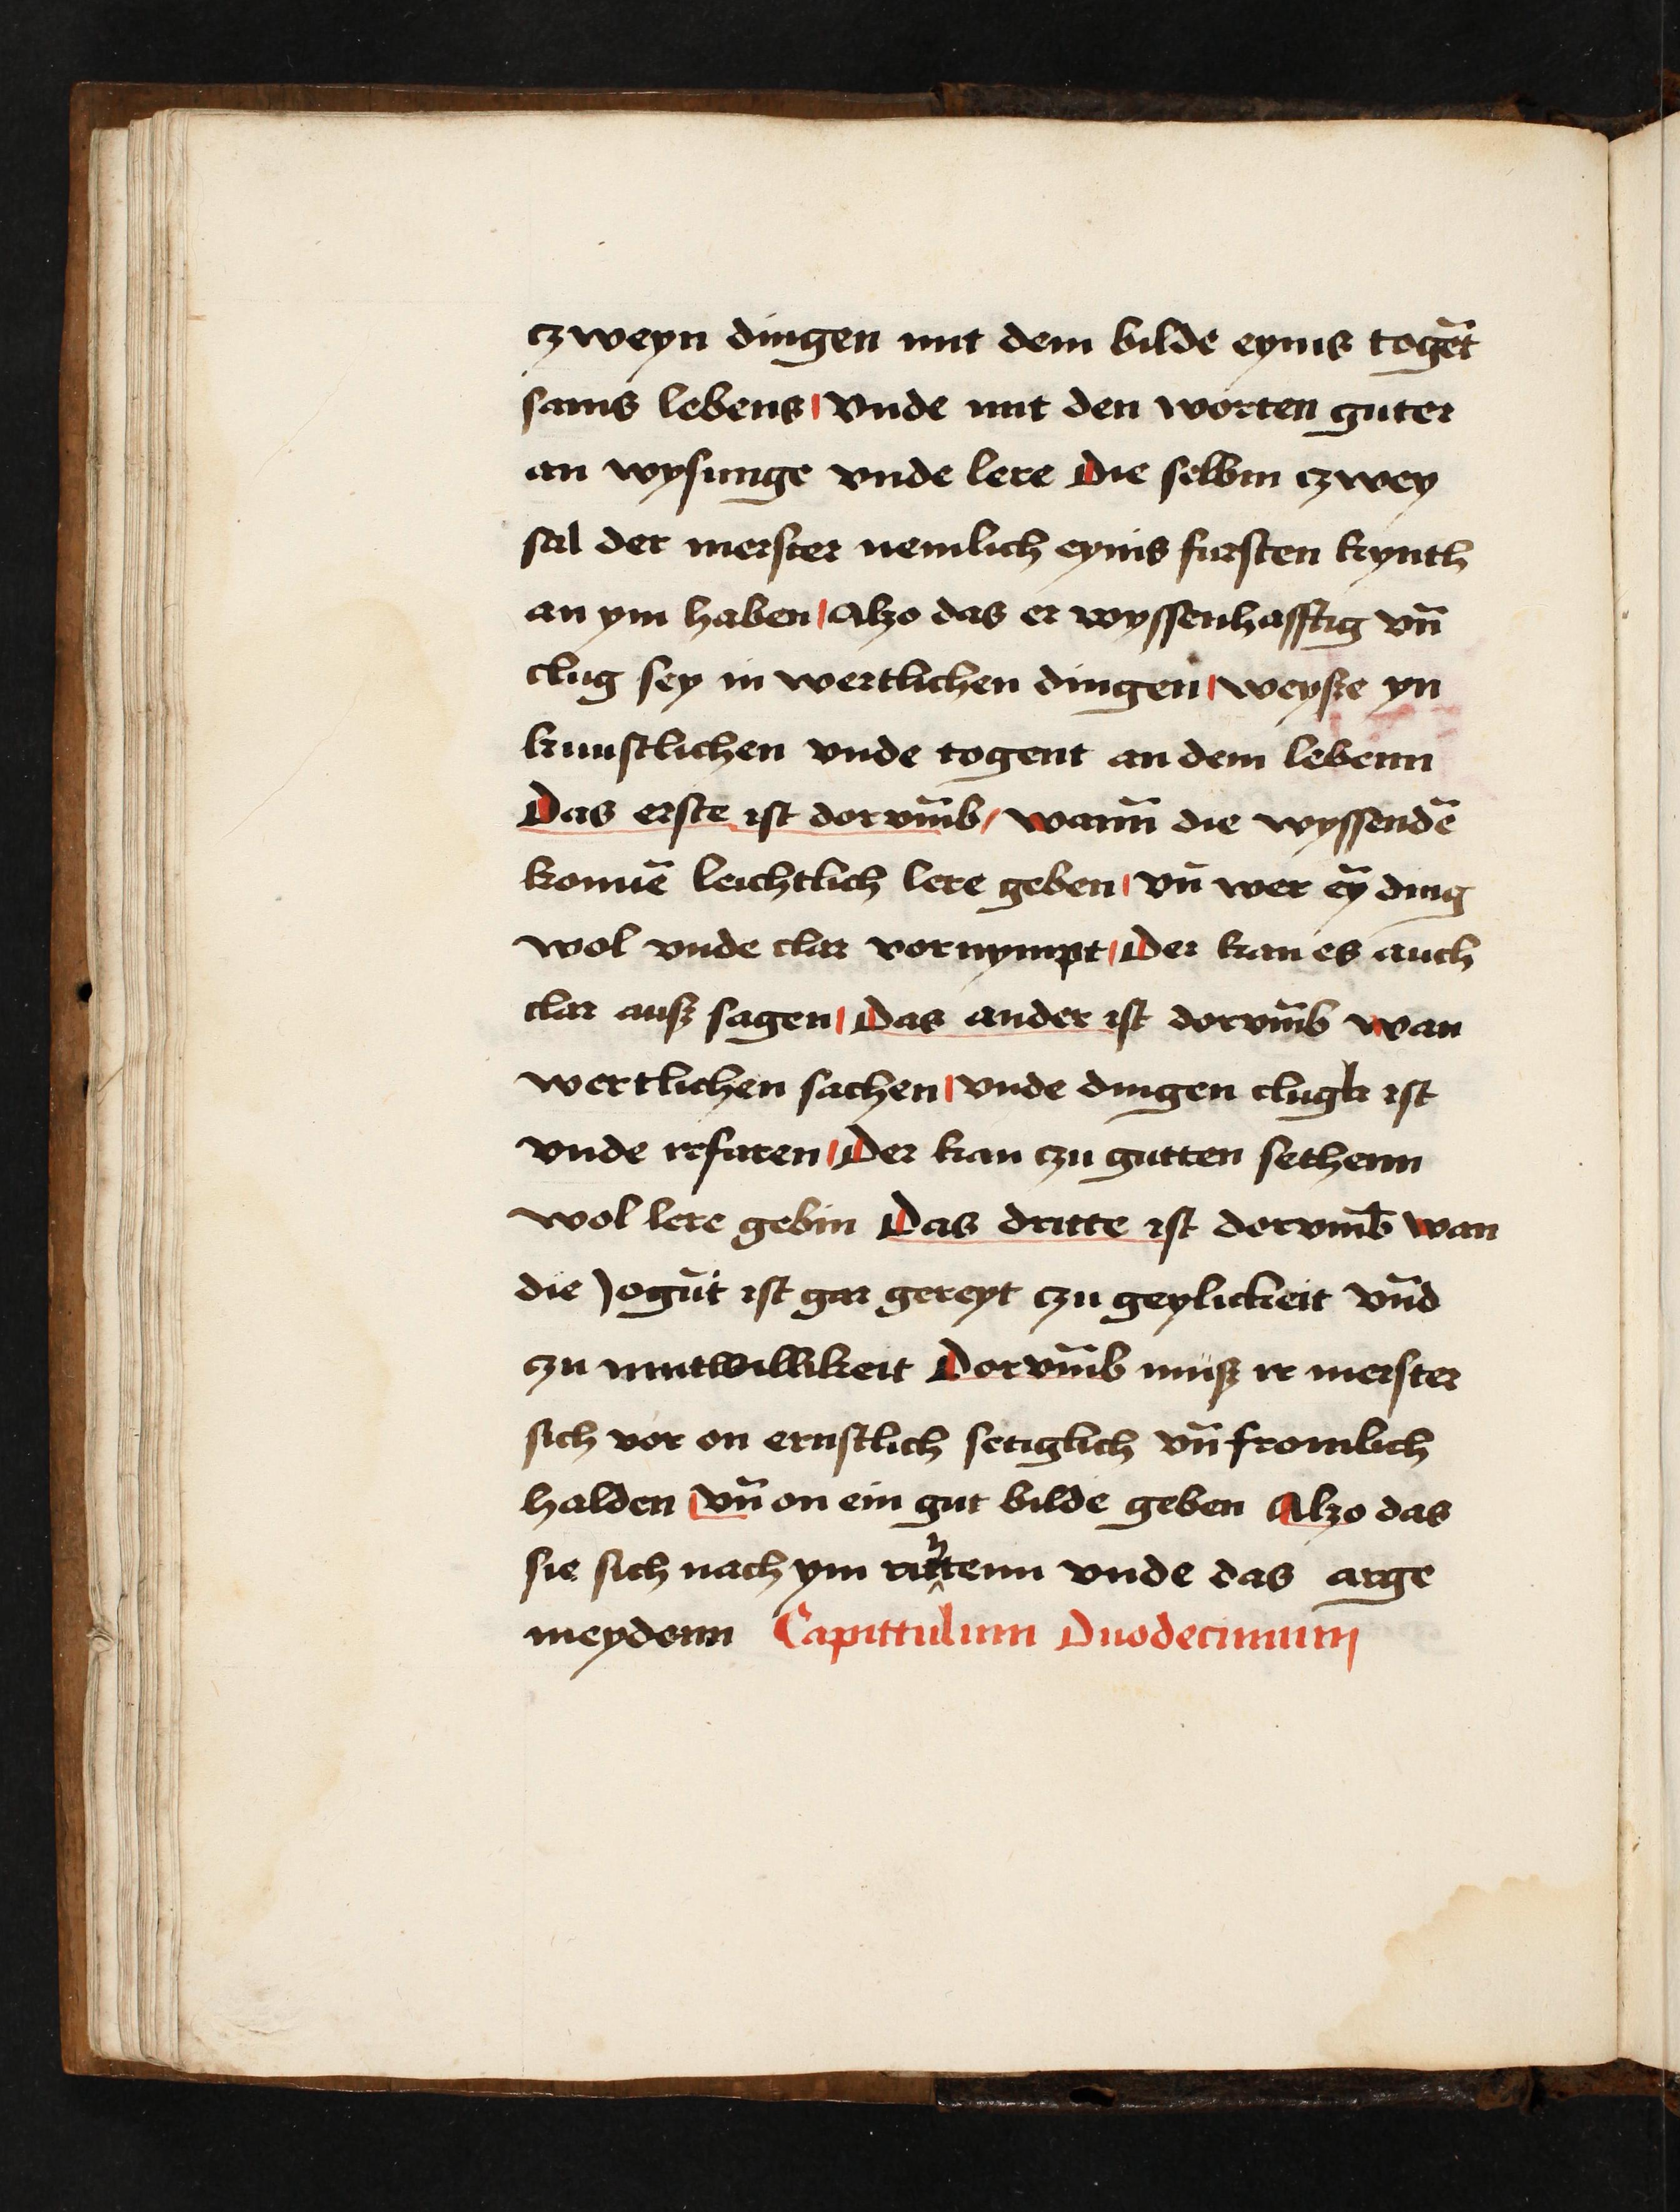 czweyn dingen mit dem bilde eynis togēt
sams lebens / vnde mit den worten guter
an wysunge vnde lere Die selbin czwey
sal der meister nemlich eynis fursten kynth
an ym haben / Alzo das er wyssenhafftig vn̄
clug sey in wertlichen dingen / weysze yn
kunstlichen vnde togent an dem lebenn
Das erste ist dorvm̄b / wann̄ die wyssendē
konnē leichtlich lere geben / vn̄ wer eȳ ding
wol vnde clar vornympt / Der kan es auch
clar ausz sagen / Das ander ist dorvm̄b wan
wertlichen sachen / vnde dingen clugk ist
vnde irfaren / Der kan czu gutten sethenn
wol lere gebin Das dritte ist dorvmb wan
die Jogūt ist gar gereyt czu geylickeit vn̄d
czu mutwillikeit Dorvm̄b musz ir meister
sich vor on ernstlich setiglich vn̄ fromlich
halden / vn̄ on ein gut bilde geben Alzo das
sie sich nach ym richtenn vnde das arge
meydenn Capittulum Duodecimum